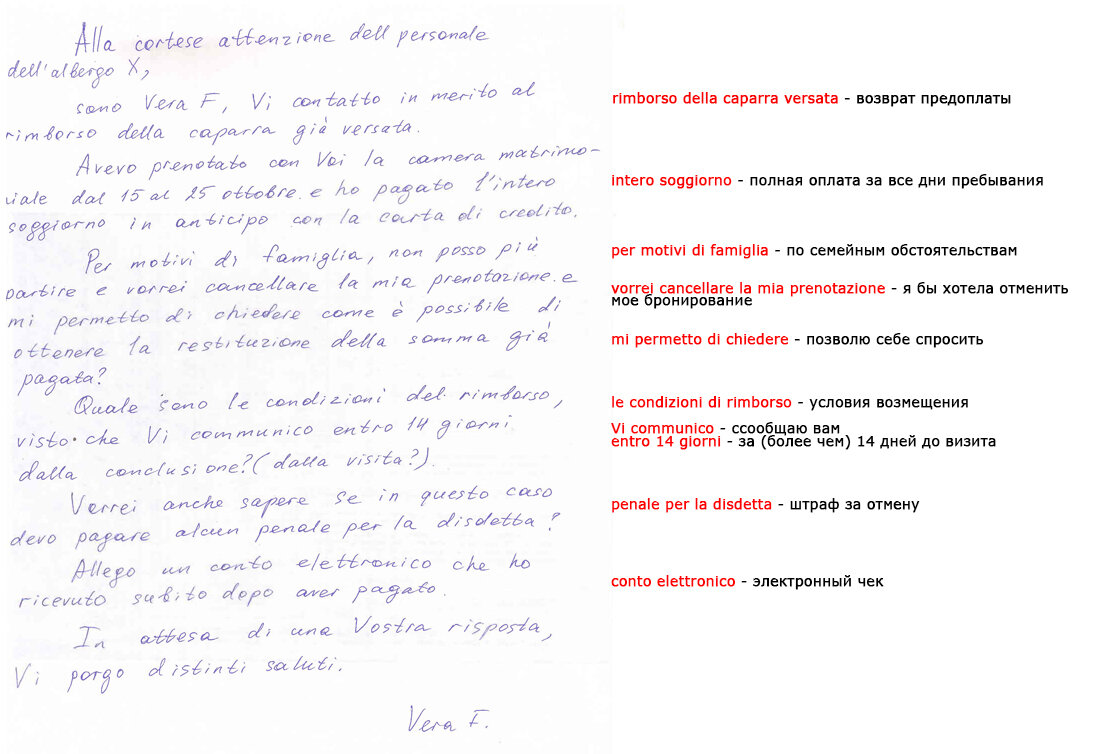 Alla cortese attenzione dell personale
dell'albergo X,
sono Vera F, Vi contatto in merito al
rimborso della caparra già versata.
Avevo prenotato con Voi la camera matrimo-
iale dal 15 al 25 ottobre. e ho pagato l'intero
soggiorno in anticipo con la carta di credito.
Per motivi di famiglia, non posso più
partire e vorrei cancellare la mia prenotazione. e
mi permetto di chiedere come è possibile di
ottenere la restituzione della somma già
pagata?
Quale sono le condizioni del rimborso,
visto che Vi communico entro 14 giorni
dalla conclusione? (dalla visita?).
Vorrei anche sapere se in questo caso
devo pagare alcun penale per la disdetta?
Allego un conto elettronico che ho
ricevuto subito dopo aver pagato.
In attesa di una Vostra risposta,
Vi porgo distinti saluti.
Vera F.
rimborso della caparra versata - возврат предоплаты
intero soggiorno - полная оплата за все дни пребывания
per motivi di famiglia - по семейным обстоятельствам
vorrei cancellare la mia prenotazione - я бы хотела отменить
мое бронирование
mi permetto di chiedere - позволю себе спросить
le condizioni di rimborso - условия возмещения
Vi communico - ссообщаю вам
entro 14 giorni - за (более чем) 14 дней до визита
penale per la disdetta - штраф за отмену
conto elettronico - электронный чек